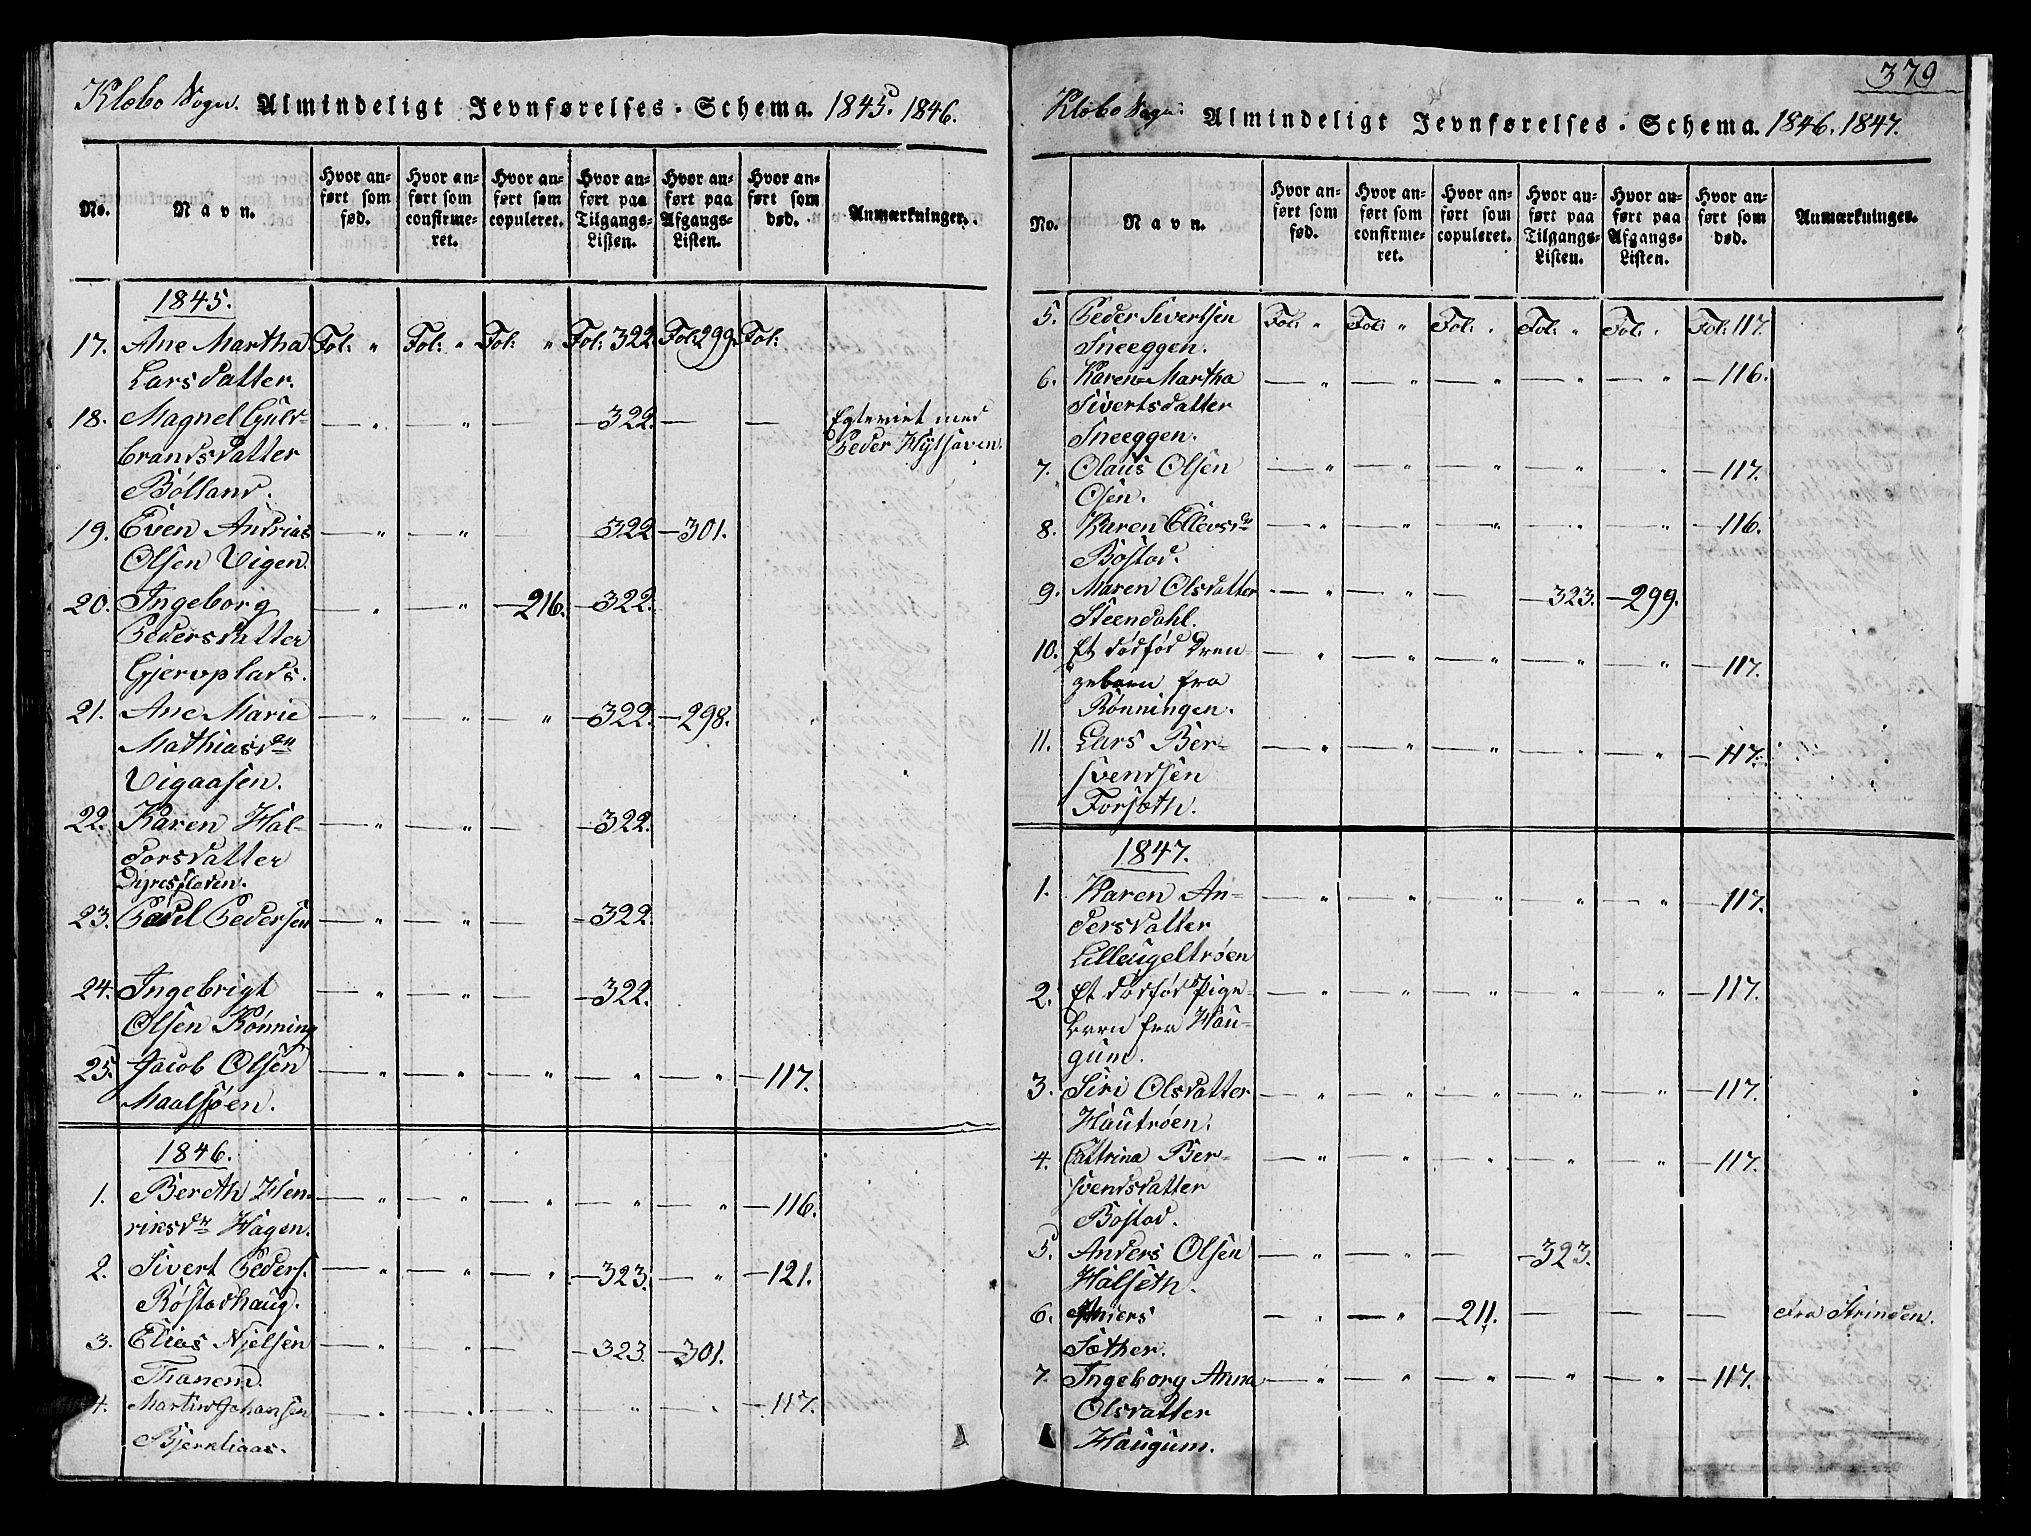 Klæbo Sogn. Almindeligt Jevnførelses-Schema. 1845. 1846.
No.
Navn.
Hvor anført som fød.
Hvor anført som confirmeret.
Hvor anført som copuleret.
Hvor anført paa Tilgangs-Listen.
Hvor anført paa Afgangs-Listen.
Hvor anført som død.
Anmærkninger.
1845.
17. Ane Martha Fol: " Fol: " Fol: " Fol: 322. Fol: 299. Fol:
Larsdatter.
18. Magnel Guld- — " — " — — 322. — — Egteviet med
brandsdatter Peder
Bølland.
19. Even Andrias — " — " — 322 — 301.
Olsen Vigen.
20. Ingeborg — " — " — 216. — 322.
Pedersdatter
Gjervplads.
21. Ane Marie — " — " — " — 322. — 298.
Mathiasdtr
Vigaasen.
22. Karen Hal- — " — " — — 322.
dorsdatter
23. Povel Pedersen — " — " — — 322.
24. Ingebrigt — " — " — — 322.
Olsen Rønning
25. Jacob Olsen — " — " — " — " — " — 117.
Maalsjøen.
1846.
1. Bereth Hen- — " — " — " — " — " — 116.
riksdr Hagen.
2. Sivert Peders. — " — " — " — 323. — " — 121.
Røstadhaug.
3. Elias Njelsen — " — " — — 323. — 301.
Tanem.
4. Martin Johansen — " — " — " — " — " — 117.
Bjerkliaas.
379
Klæbo Sogn. Almindeligt Jevnførelses-Schema. 1846. 1847.
No.
Navn.
Hvor anført som fød.
Hvor anført som confirmeret.
Hvor anført som copuleret.
Hvor anført paa Tilgangs-Listen.
Hvor anført paa Afgangs-Listen.
Hvor anført som død.
Anmærkninger.
5. Peder Sivertsen Fol: " Fol: " Fol: " Fol: " Fol: " Fol: 117.
Sneeggen.
6. Karen Martha — " — " — " — " — " — 116.
Sivertsdatter
Sneeggen.
7. Olaus Olsen — " — " — " — " " — 117.
Osen.
8. Karen Ellevsdr — " — " — " " " — 116.
Bostad.
9. Maren Olsdatter — " — " — — 323. — 299.
Steendahl.
10. Et dødfød Dren- — " — " — " — " — " — 117.
gebarn fra
Rønningen.
11. Lars Ber- — " — " — " — " — " — 117.
svendsen
Forsæth.
1847.
1. Karen An- — " — " — " — " — " — 117.
dersdatter
Lilleugeltrøen
2. Et dødfød Pige- — " — " — " — " — " — 117.
barn fra Hau-
gum.
3. Siri Olsdatter — " — " — " — " — " — 117.
Hautrøen.
4. Cattrina Ber- — " — " — " — " — " — 117.
svendsdatter
Bostad.
5. Anders Olsen — " — " — — 323.
Halseth.
6. — " — " — 211. — — — Fra Strinden.
Sæther.
7. Ingeborg Anna — " — " — " — " — " — 117.
Olsdatter
Haugum.